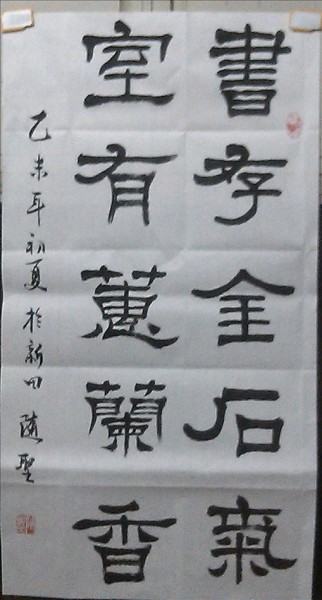 書存金石氣
室有蕙蘭香
乙未年初夏於新田 隨聖